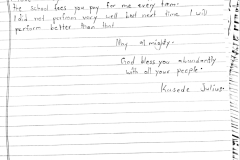 the school fees you pay for me every term.
I did not perform very well but next time I will
perform better than that
May almighty.
God bless you abundantly
with all your people.
Kasede Julius.